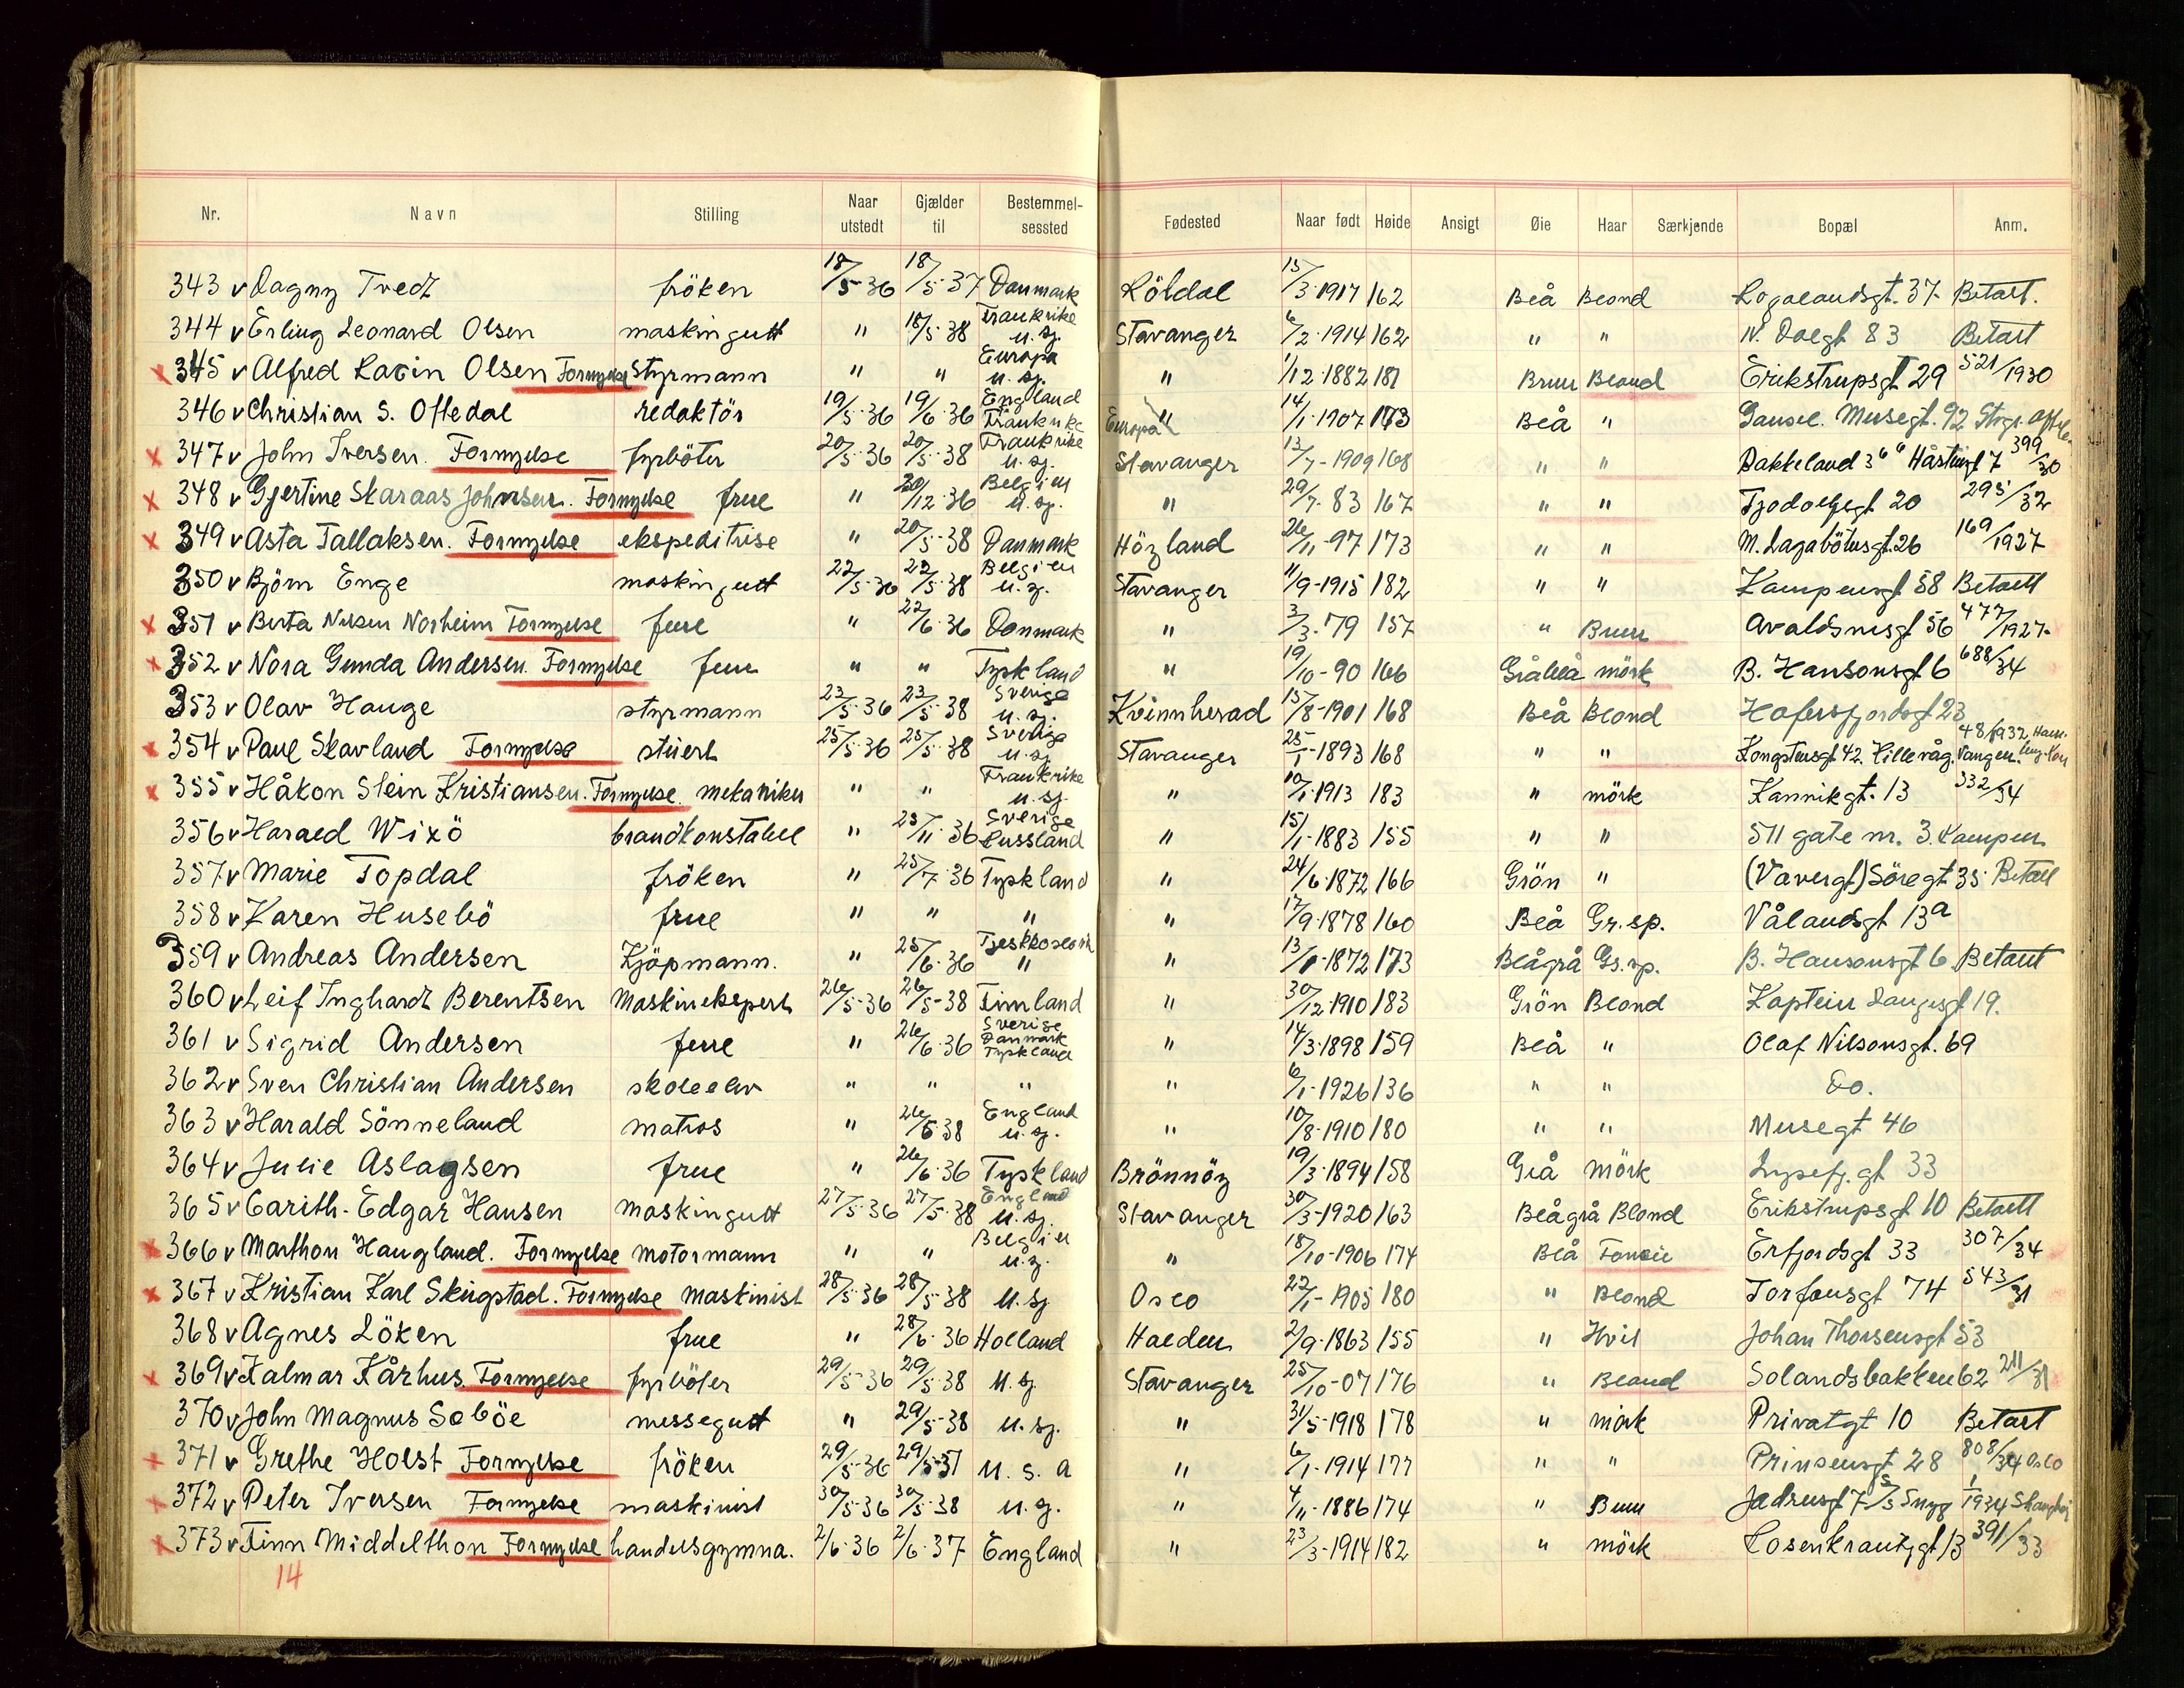 Nr. Navn Stilling Naar utstedt Gjælder til Bestemmelsessted Fødested Naar født Høide Ansigt Øie Haar Særkjende Bopæl Anm.
343 v Dagny Tvedt fröken 18/5-36 18/5-37 Danmark Röldal 15/3-1917 162 Blå Blond Rogalandsgt. 37. Betalt.
344 v Erling Leonard Olsen maskingutt " 18/5-38 Frankrike u. sj. Stavanger 6/2-1914 162 " " N. Dalgt 83 Betalt
x 345 v Alfred Olsen Fornyelse styrmann " " Europa u. sj. " 1/12-1882 181 Brun Blond Erikstrupsgt 29 521/1930
346 v Christian S. Oftedal redaktör 19/5-36 19/6-36 England Frankrike Europa " 14/1-1907 173 Blå " Gausel. Musegt. 92
x 347 v John Iversen. Fornyelse fyrböter 20/5-36 20/5-38 Frankrike u. sj. Stavanger 13/7-1909 168 " " Bakkeland 36 399/30
x 348 v Gjertine Skaraas Johnsen. Fornyelse frue " 30/12-36 Belgien u. sj. " 29/7-83 167 " " Tjodolfsgt 20 295/32
x 349 v Asta Tallaksen. Fornyelse ekspeditrise " 20/5-38 Danmark Högland 26/11-97 173 " " M. Lagabötersgt. 26 169/1927
350 v Björn Enge maskingutt 22/5-36 22/5-38 Belgien u. sj. Stavanger 11/9-1915 182 " " Kampensgt 58 Betalt
x 351 v Berta Nilsen Norheim Fornyelse frue " 22/6-36 Danmark " 3/3-79 157 " Brun Avaldsnesgt 56 477/1927.
x 352 v Nora Gunda Andersen Fornyelse frue " " Tyskland " 19/10-90 166 Gråblå mörk B. Hansonsgt 6 688/34
353 v Olav Hauge styrmann 23/5-36 23/5-38 Sverige u. sj. Kvinnherad 15/8-1901 168 Blå Blond Hafersfjordsgt 23
x 354 v Paul Skavland Fornyelse stuert 25/5-36 25/5-38 Sverige u. sj. Stavanger 25/1-1893 168 " " Kongstensgt 42. Hillevåg. 48/1932
x 355 v Håkon Stein Kristiansen. Fornyelse. mekaniker " " Frankrike u. sj. " 10/1-1913 183 " mörk Kannikgt. 13 332/34
356 v Harald Wixö brandkonstabel " 25/11-36 Sverige Russland " 15/1-1883 155 " " 511 gate nr. 3. Kampen
357 v Marie Topdal fröken " 25/7-36 Tyskland " 24/6-1872 166 Grön " (Vavergt) Söregt 35. Betalt
358 v Karen Husebö frue " " " " 17/9-1878 160 Blå Gr.sp. Vålandsgt 13a
359 v Andreas Andersen Kjöpmann. " 25/6-36 Tjekkoslovak " " 13/1-1872 173 Blågrå Gr.sp. B. Hansonsgt 6. Betalt
360 v Leif Inghardt Berentsen Maskinekspert 26/5-36 26/5-38 Finnland " 30/12-1910 183 Grön Blond Kaptein Langesgt 19.
361 v Sigrid Andersen frue " 26/6-36 Sverige Danmark Tyskland " 14/3-1898 159 Blå " Olaf Nilsonsgt. 69
362 v Sven Christian Andersen skoleelev " " " " 6/1-1926 136 " " Do.
363 v Harald Sönneland matros " 26/5-38 England u. sj. " 10/8-1910 180 " " Musegt 46
364 v Julie Aslagsen frue " 26/6-36 Tyskland Brönnöy 19/3-1894 158 Grå Mörk Lysefj. gt 33
365 v Carith-Edgar Hansen maskingutt 27/5-36 27/5-38 England u. sj. Stavanger 30/3-1920 163 Blågrå Blond Erikstrupsgt 10 Betalt
x 366 v Marthon Haugland. Fornyelse motormann " " Belgien u. sj. " 18/10-1906 174 Blå Erfjordsgt 33 307/34
x 367 v Kristian Karl Skingstad. Fornyelse maskinist 28/5-36 28/5-38 u. sj Oslo 22/1-1905 180 " Blond Torfeusgt 74 543/31
368 v Agnes Löken frue " 28/6-36 Holland Halden 2/9-1863 155 " Hvit Johan Thorsensgt 53
x 369 v Kalmar Kårhus. Fornyelse fyrböter 29/5-36 29/5-38 u. sj. Stavanger 25/10-07 176 " Blond Solandsbakken 62 211/31
370 v John Magnus Soböe messegutt " 29/5-38 u. sj. " 31/5-1918 178 " mörk Privatgt 10 Betalt
x 371 v Grethe Holst Fornyelse fröken 29/5-36 29/5-37 U. S. A " 6/1-1914 177 " " Prinsensgt 28 808/34 Oslo
x 372 v Peter Iversen Fornyelse maskinist 30/5-36 30/5-38 u. sj. " 4/11-1886 174 " Brun Jadrusgt 7 1/1934 Shanghai
x 373 v Finn Middelthon Fornyelse handelsgymna. 2/6-36 2/6-37 England " 23/3-1914 182 " mörk Rosenkrantzgt 13 391/33
14